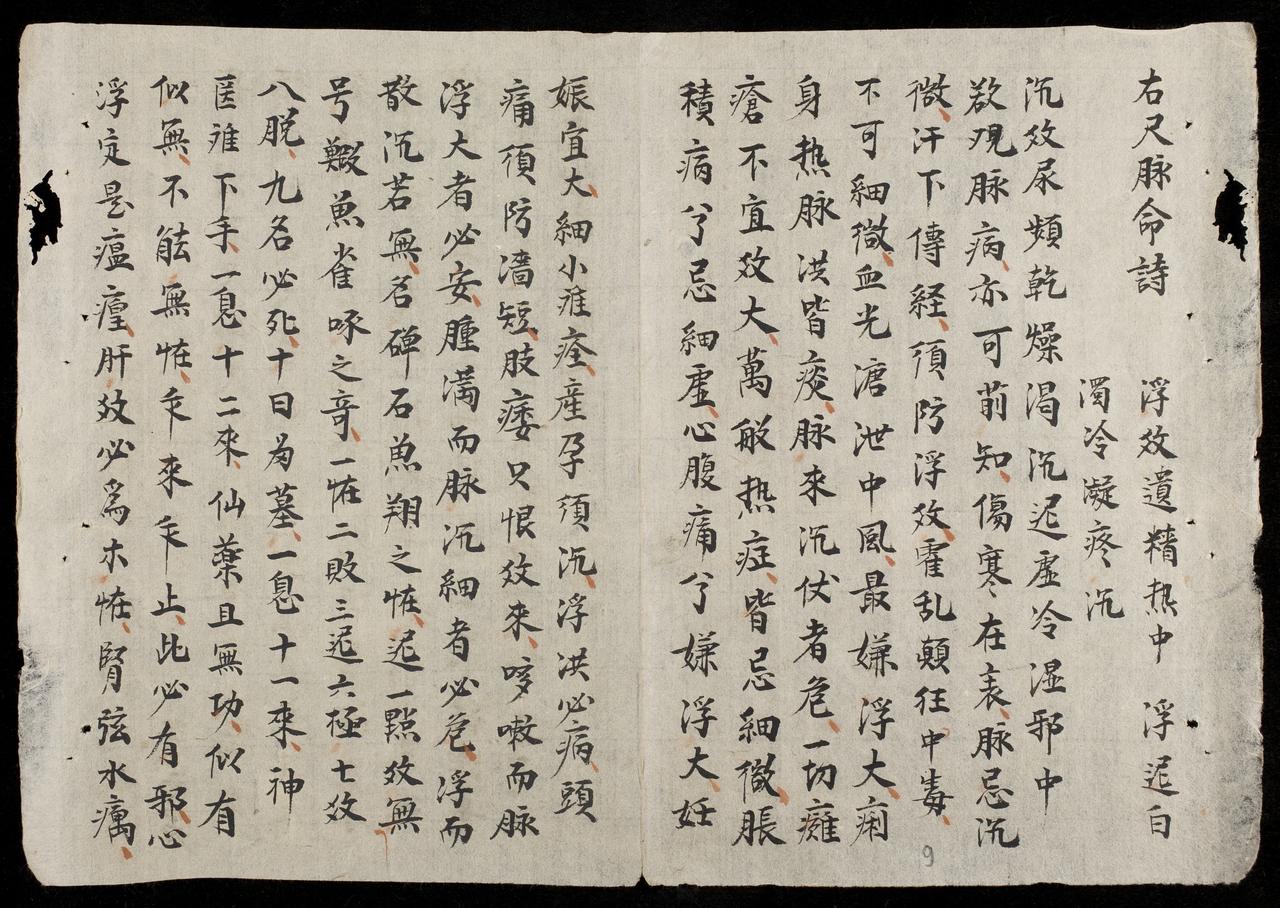 右尺脉命詩 浮效遺精热中 浮迟白
濁冷凝疼沉
沉效尿頻乾燥渴沉迟虚冷湿邪中
欲覌脉病亦可前知傷寒在表脉忌沉
微汗下傳経須防浮效霍乱顛狂中毒
不可細微血光溏泄中風最嫌浮大痢
身热脉洪皆痰脉來沉伏者危一切癰
瘡不宜效大萬般热症皆忌細微脹
積病兮忌細虚心腹痛兮嫌浮大妊
娠宜大細小难痊産孕須沉浮洪必病頭
痛須防濇短肢痿只恨效来哆嗽而脉
浮大者必安腫满而脉沉細者必危浮而
散沉若無名碑石魚翔之恠迟一點效無
号鰕魚雀啄之竒一恠二敗三迟六極七效
八脱九名必死十曰為墓一息十一來神
医难下手一息十二來仙藥且無功似有
似無不能無恠乍來乍止此必有邪心
浮定是瘟㾮肝效必為木恠腎弦水癘
9